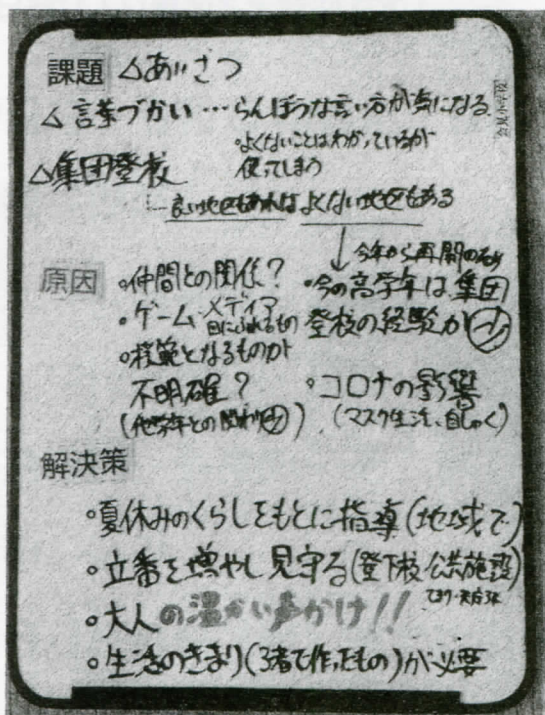 課題 △あいさつ
△言葉づかい…らんぼうな言い方が気になる
・よくないことはわかっているが
使ってしまう
△集団登校
良い地区もあればよくない地区もある
↓今年から再開のため
原因 ・仲間との関係?
・今の高学年は集団
登校の経験が㊀
・ゲーム・メディア
目にふれるもの
・模範となるものが
不明確?
(他学年との関わり㊀)
・コロナの影響
(マスク生活、自しゅく)
解決策
・夏休みのくらしをもとに指導(地域で)
・立番を増やし見守る(登下校 公共施設)
・大人の温かい声かけ!!
・生活のきまり(3者で作ったもの)が必要